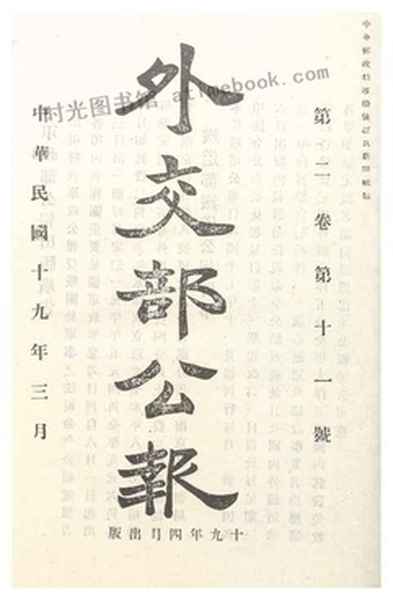 中華郵政特准掛號認為新聞紙類
第二卷第十一號
外交部公報
十九年四月出版
中華民國十九年三月
时光图书馆 atimebook.com